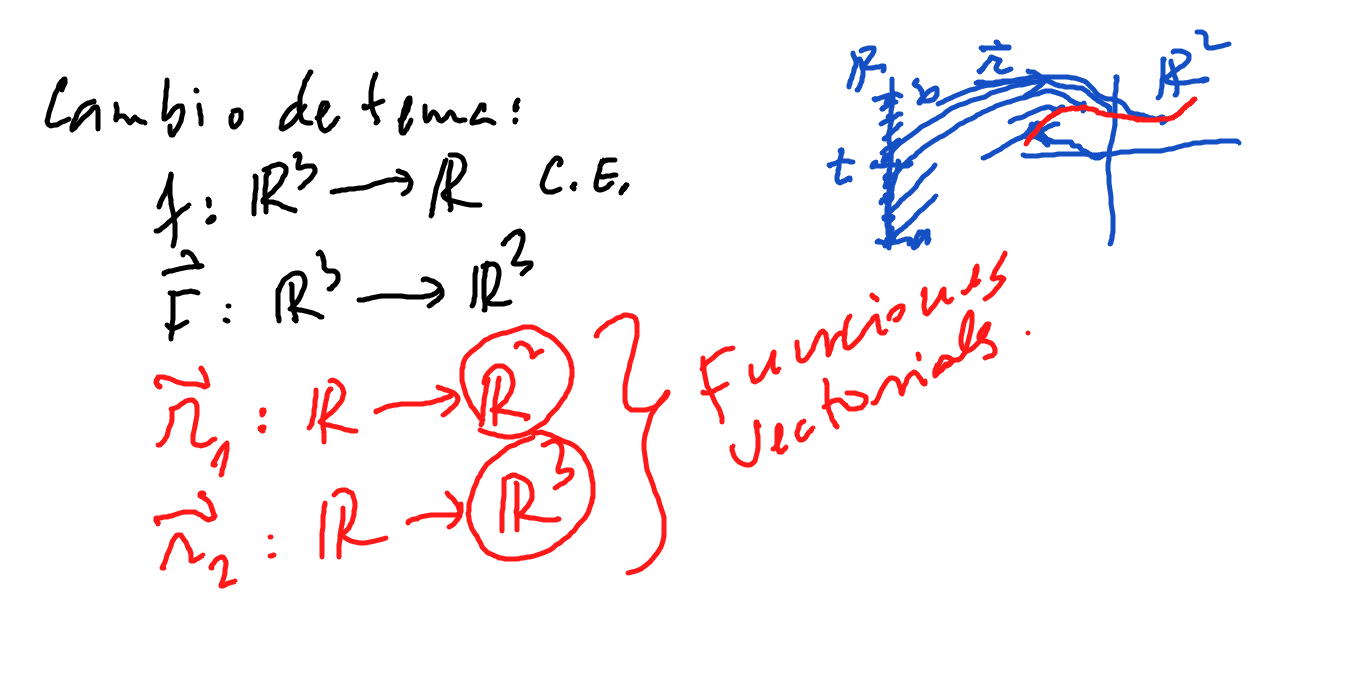 Cambio de tema:
f: ℝ³ → ℝ C.E.
F⃗: ℝ³ → ℝ³
r⃗₁: ℝ → ℝ²
r⃗₂: ℝ → ℝ³
Funciones
vectoriales.
ℝ r⃗ ℝ²
b
t
a